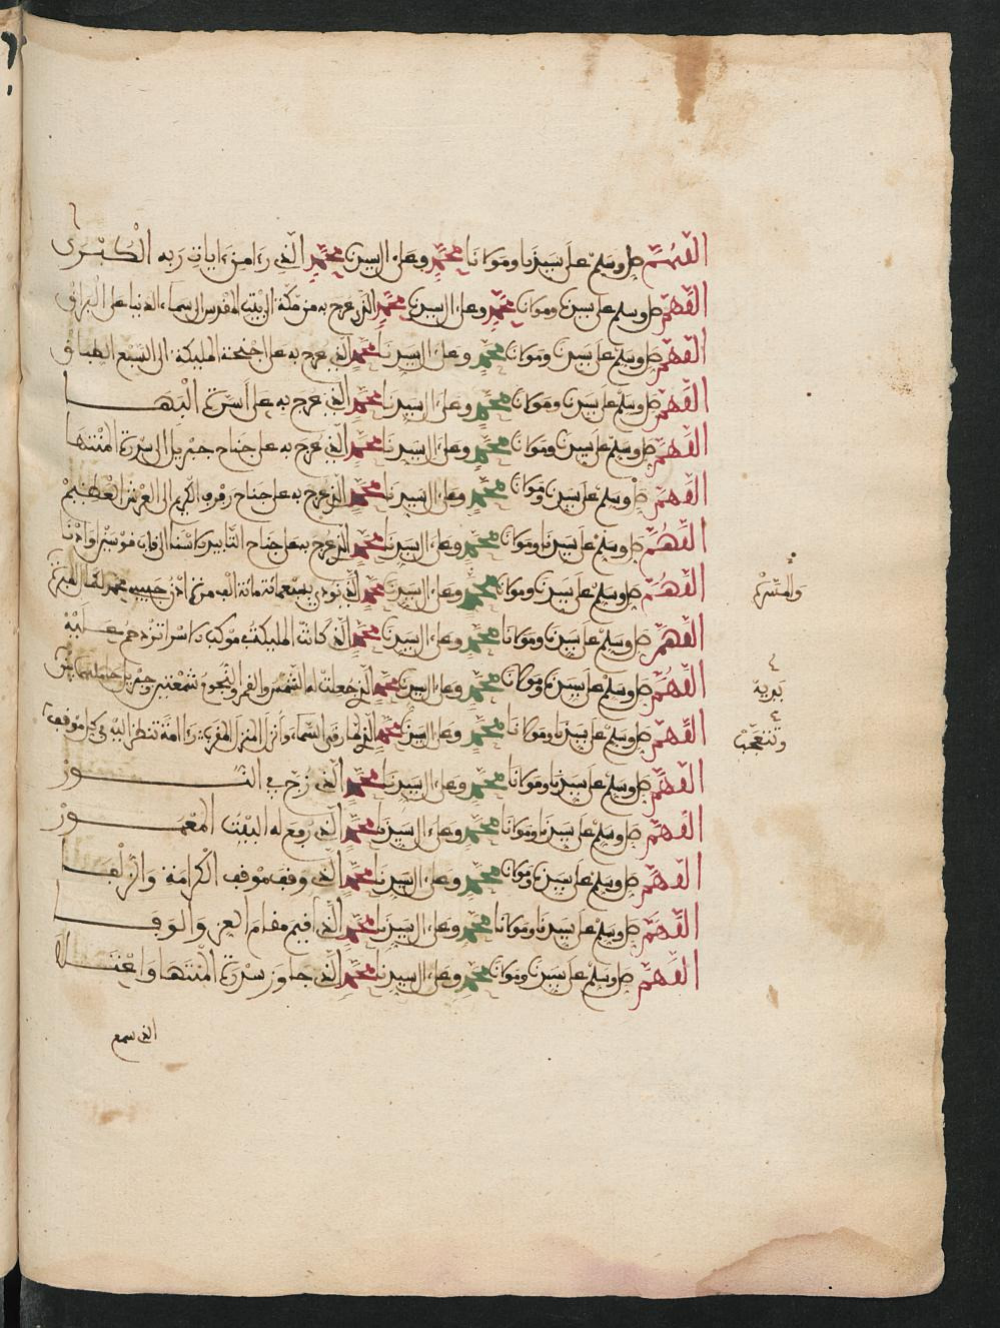 اللهم صل وسلم على سيدنا ومولانا محمد وعلى ءال سيدنا محمد الذي رءا من ءايات ربه الكبرى
اللهم صل وسلم على سيدنا ومولانا محمد وعلى ءال سيدنا محمد الذي عرج به من مكة الى بيت المقدس الى سماء الدنيا على البراق
اللهم صل وسلم على سيدنا ومولانا محمد وعلى ءال سيدنا محمد الذي عرج به على اجنحة المليكة الى السبع الطباق
اللهم صل وسلم على سيدنا ومولانا محمد وعلى ءال سيدنا محمد الذي عرج به على أسرة البها
اللهم صل وسلم على سيدنا ومولانا محمد وعلى ءال سيدنا محمد الذي عرج به على جناح جبريل الى سدرة المنتها
اللهم صل وسلم على سيدنا ومولانا محمد وعلى ءال سيدنا محمد الذي عرج به على جناح رفرف الكريم الى العرش العظيم
اللهم صل وسلم على سيدنا ومولانا محمد وعلى ءال سيدنا محمد الذي عرج به على جناح التأييد الى قاب قوسين او ادنا
اللهم صل وسلم على سيدنا ومولانا محمد وعلى ءال سيدنا محمد الذي نودي بسبعمائة مائة الف مرة ادن حبيبي محمد
اللهم صل وسلم على سيدنا ومولانا محمد وعلى ءال سيدنا محمد الذي كانت المليكة موكب الاسرا تزدحم عليه
اللهم صل وسلم على سيدنا ومولانا محمد وعلى ءال سيدنا محمد الذي جعلت له الشمس والقمر والنجوم
اللهم صل وسلم على سيدنا ومولانا محمد وعلى ءال سيدنا محمد الذي لما رقى السماء وأنزل المنزل تنظر اليه في كل موقف
اللهم صل وسلم على سيدنا ومولانا محمد وعلى ءال سيدنا محمد الذي زج في النور
اللهم صل وسلم على سيدنا ومولانا محمد وعلى ءال سيدنا محمد الذي رفع له البيت المعمور
اللهم صل وسلم على سيدنا ومولانا محمد وعلى ءال سيدنا محمد الذي وقف موقف الكرامة والزلفا
اللهم صل وسلم على سيدنا ومولانا محمد وعلى ءال سيدنا محمد الذي اقيم مقام العز والوفا
اللهم صل وسلم على سيدنا ومولانا محمد وعلى ءال سيدنا محمد الذي جاوز سدرة المنتها واعتلا
الذي سمع
وتتعجب